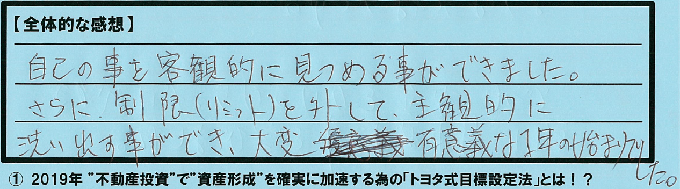 【全体的な感想】
自己の事を客観的に見つめる事ができました。
さらに、制限(リミット)を外して、主観的に
洗い出す事ができ、大変 有意義な1年の始まりでした。
① 2019年 "不動産投資"で"資産形成"を確実に加速する為の「トヨタ式目標設定法」とは！？